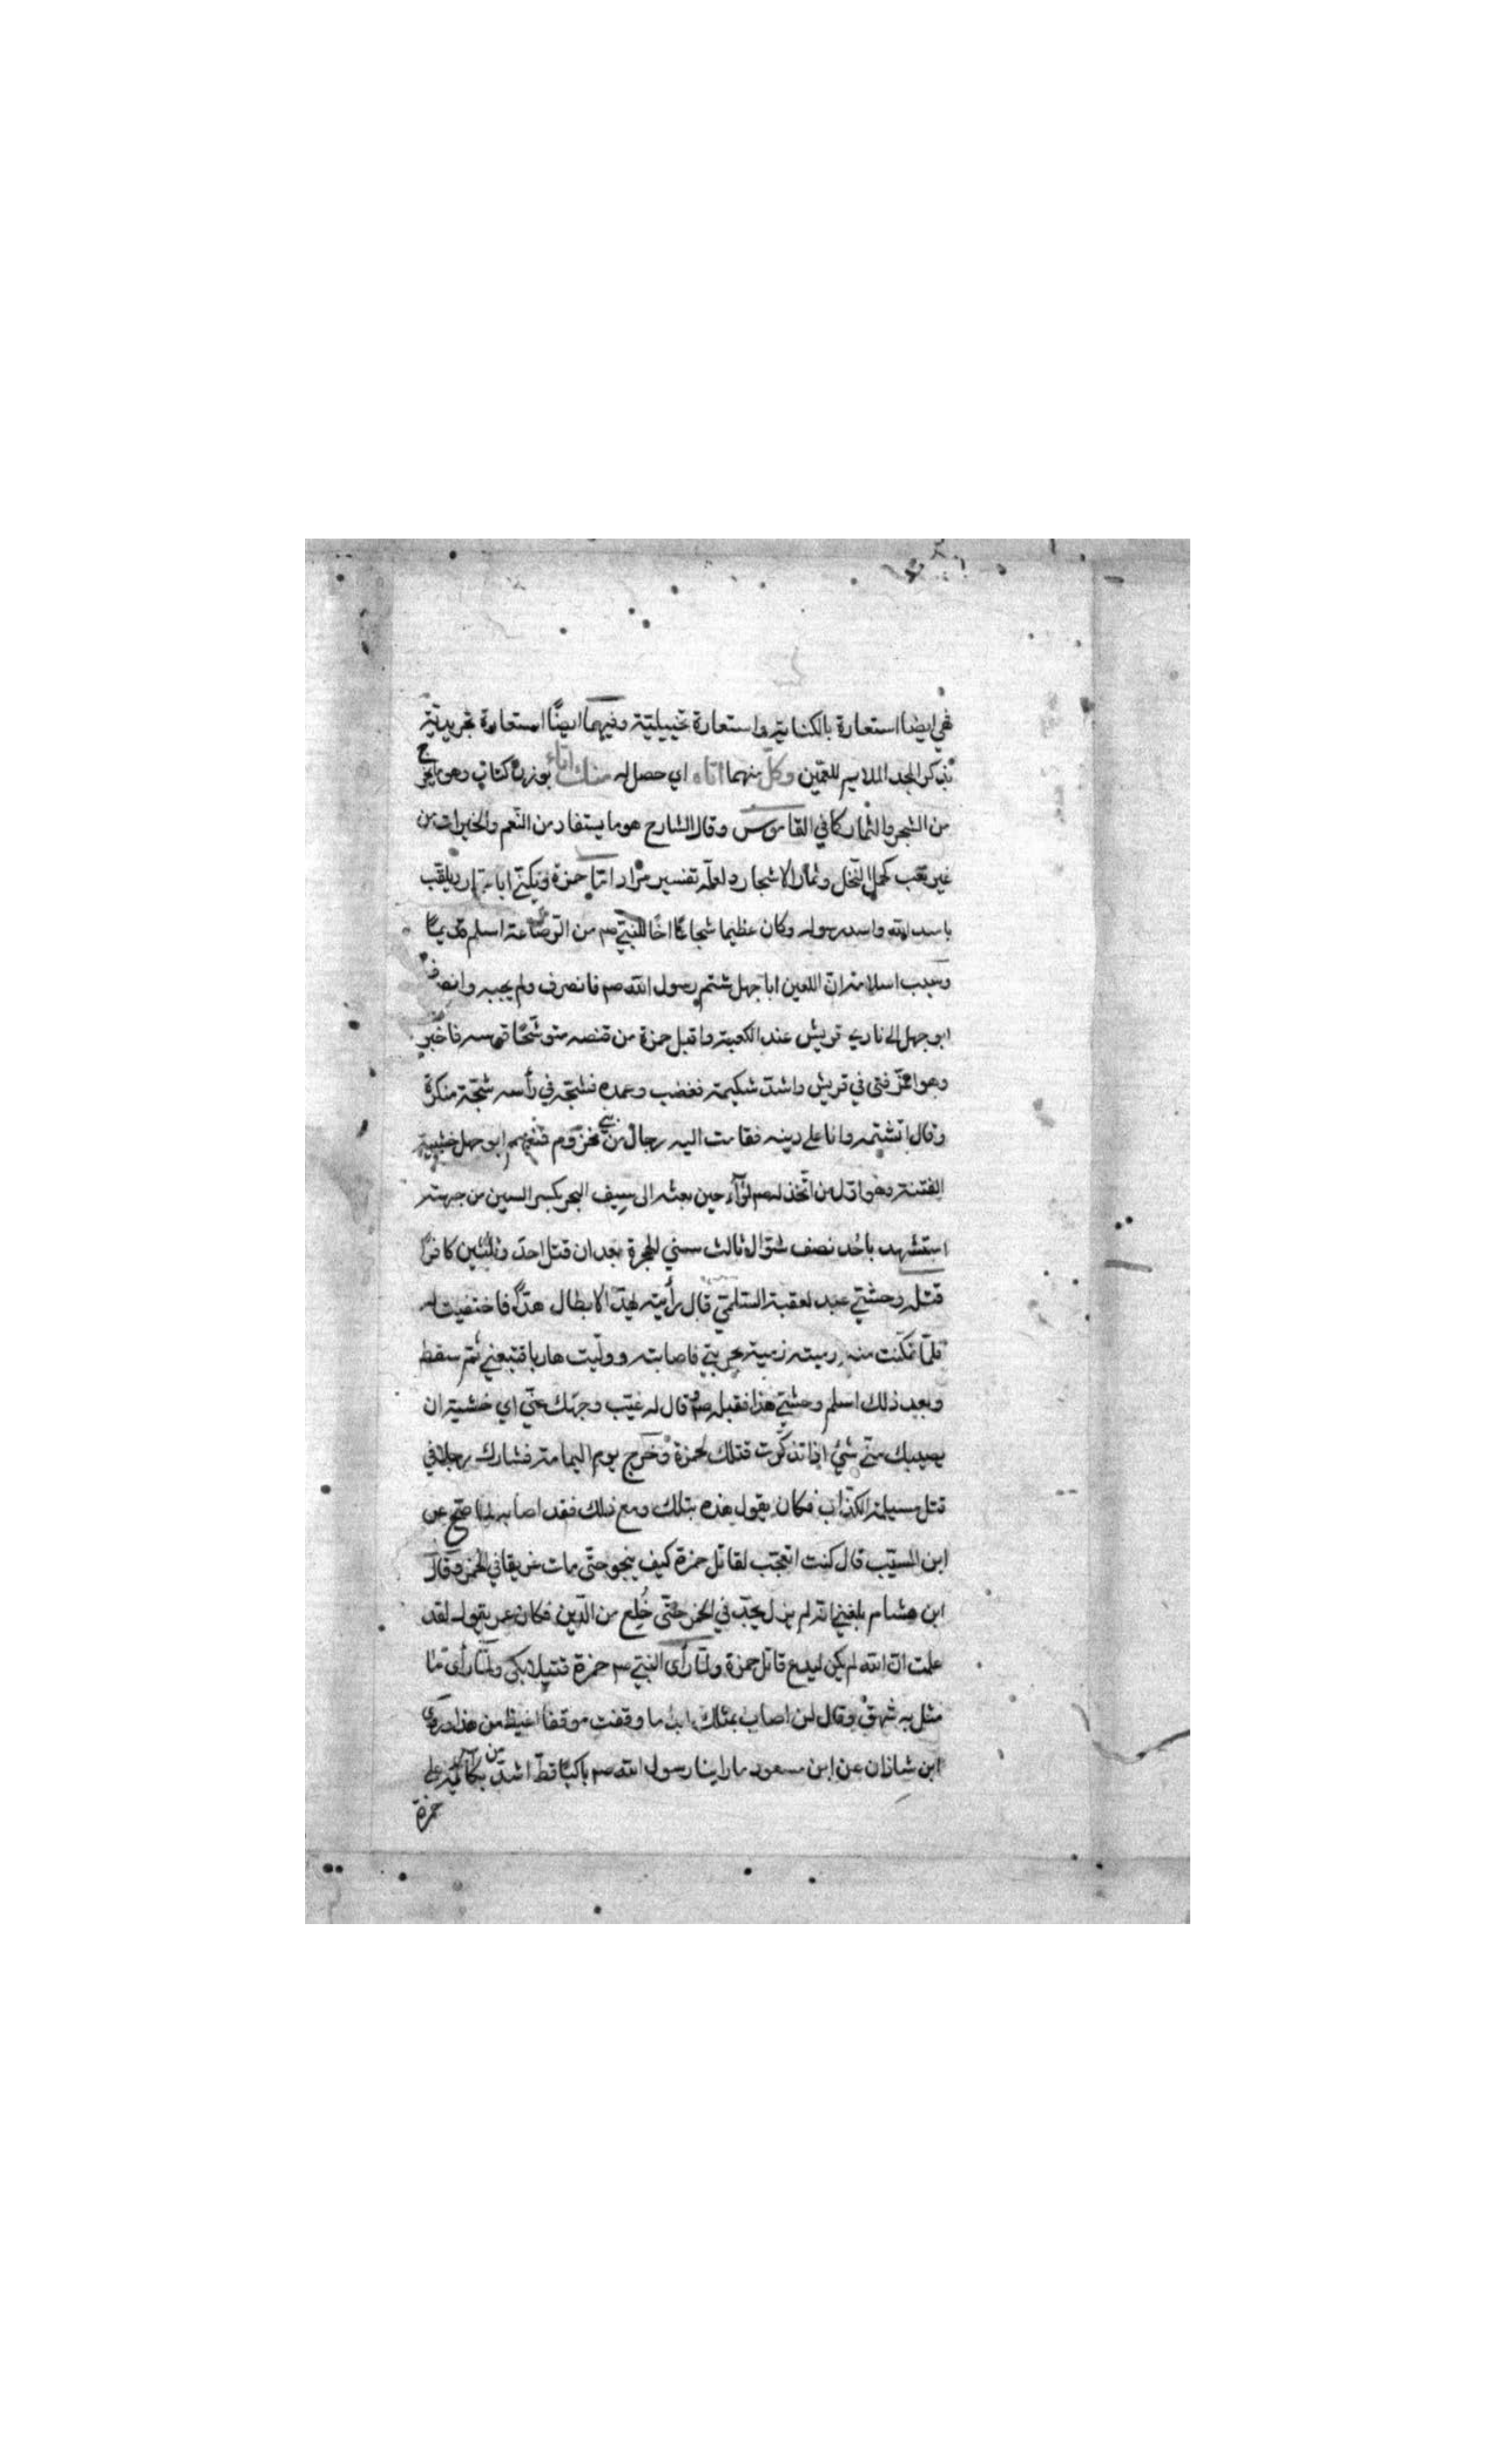 فهي ايضا استعارة بالكناية واستعارة تخييلية وفيهما ايضًا استعارة تجريدية
بذكر المجد الملايم للعمّين وكلّ منهما اتاه اي حصل له منك اتاء بوزن كتاب وهو ما يخرج
من الشجر والثمار كما في القاموس وقال الشارح هو ما يستفاد من النعم والخيرات من
غير تعب كحمل النخل وثمار الاشجار ولعله تفسير مراد امّا حمزة ويكنّى ابا ويلقب
باسد الله واسد رسوله وكان عظيما شجاعًا اخًا للنبيّ صم من الرّضاعة اسلم قديمًا
وسبب اسلامه انّ اللعين ابا جهل شتم رسول الله صم فانصرف ولم يجبه وانصرف
ابو جهل الى نادي قريش عند الكعبة واقبل حمزة من قنصه متوشّحًا قوسه فاخبر
وهو اعزّ فتى في قريش واشدّ شكيمة فغضب وعمده فشجّه في رأسه شجّة منكرة
وقال اتشتمه وانا على دينه فقامت اليه رجال من بني مخزوم فمنعهم ابو جهل خشية
الفتنة وهو اوّل من اتّخذ له صم لوآء حين بعثه الى سِيف البحر بكسر السين من جهته
استشهد باحُد نصف شوّال ثالث سني الهجرة بعد ان قتل احدًا وثلثين كافرًا
قتله وحشيّ عبد لعقبة السّلميّ قال رأيته يهدّ الابطال هدًّا فاختفيت له
فلمّا تمكّنت منه رميته رمية بحربتي فاصابته وولّيت هاربا فتبعني ثم سقط
وبعد ذلك اسلم وحشيّ هذا فقبله صم وقال له غيّب وجهك عنّي اي خشية ان
يصيبك منّي شئ اذا تذكّرت قتلك لحمزة وخرج يوم اليمامة فشارك رجلا في
قتل مسيلمة الكذّاب فكان يقول هذه بتلك ومع ذلك فقد اصابه لما صحّ عن
ابن المسيّب قال كنت اتعجّب لقاتل حمزة كيف ينجو حتّى مات غريقا في الخمر وقال
ابن هشام بلغني انّه لم يزل يحدّ في الخمر حتّى خُلِع من الدّين فكان عمر يقول لقد
علمت انّ الله لم يكن ليدع قاتل حمزة ولمّا رأى النبيّ صم حمزة قتيلا بكى ولمّا رأى ما
مثل به شهق وقال لن اصاب بمثلك ابدًا ما وقفت موقفا اغيظ من هذا وروى
ابن شاذان عن ابن مسعود ما راينا رسول الله صم باكيًا قطّ اشدّ من بكائه على
حمزة